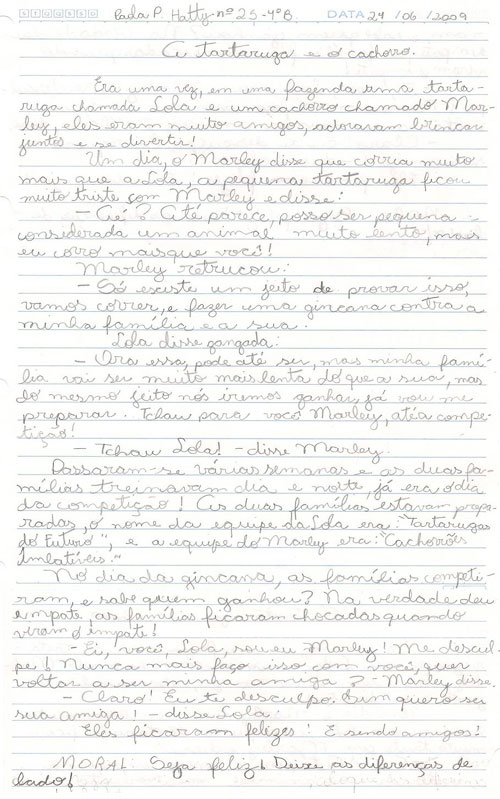 S T Q Q S S D Paula P. Hatty - nº 25 - 4ºB DATA 24 / 06 / 2009
A tartaruga e o cachorro.
Era uma vez, em uma fazenda uma tarta-
ruga chamada Lola e um cachorro chamado Mar-
ley, eles eram muito amigos, adoravam brincar
juntos e se divertir!
Um dia, o Marley disse que corria muito
mais que a Lola, a pequena tartaruga ficou
muito triste com Marley e disse:
– Aé? Até parece, posso ser pequena
considerada um animal muito lento, mais
eu corro mais que você!
Marley retrucou:
– Só existe um jeito de provar isso,
vamos correr, e fazer uma gincana contra a
minha família e a sua.
Lola disse zangada:
– Ora essa, pode até ser, mas minha famí-
lia vai ser muito mais lenta do que a sua, mas
do mesmo jeito nós iremos ganhar, já vou me
preparar. Tchau para você Marley, até a compe-
tição!
– Tchau Lola! – disse Marley.
Passaram-se várias semanas e as duas fa-
mílias treinavam dia e noite, já era o dia
da competição! As duas famílias estavam prepa-
radas, o nome da equipe da Lola era: "Tartarugas
do Futuro", e a equipe do Marley era: "Cachorrões
Imbatíveis."
No dia da gincana, as famílias competi-
ram, e sabe quem ganhou? Na verdade deu
empate, as famílias ficaram chocadas quando
viram o impate!
– Ei, você, Lola, sou eu Marley! Me descul-
pe! Nunca mais faço isso com você, quer
voltar a ser minha amiga? – Marley disse.
– Claro! Eu te desculpo. Eu quero ser
sua amiga! – disse Lola.
Eles ficaram felizes! E sendo amigos!
MORAL: Seja feliz! Deixe as diferenças de
lado!